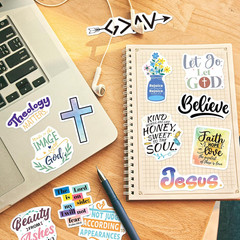 Theology
MATTERS
IMAGE
of
GOD
Beauty
The Lord
is on my
side; I
will not
fear
NOT JUDGE
ACCORDING
APPEARANCES
Rejoice
Rejoice
Let Go
Let
GOD
Believe
KIND
words are like
HONEY,
SWEET
to the
SOUL
Faith
HOPE
Love
Jesus